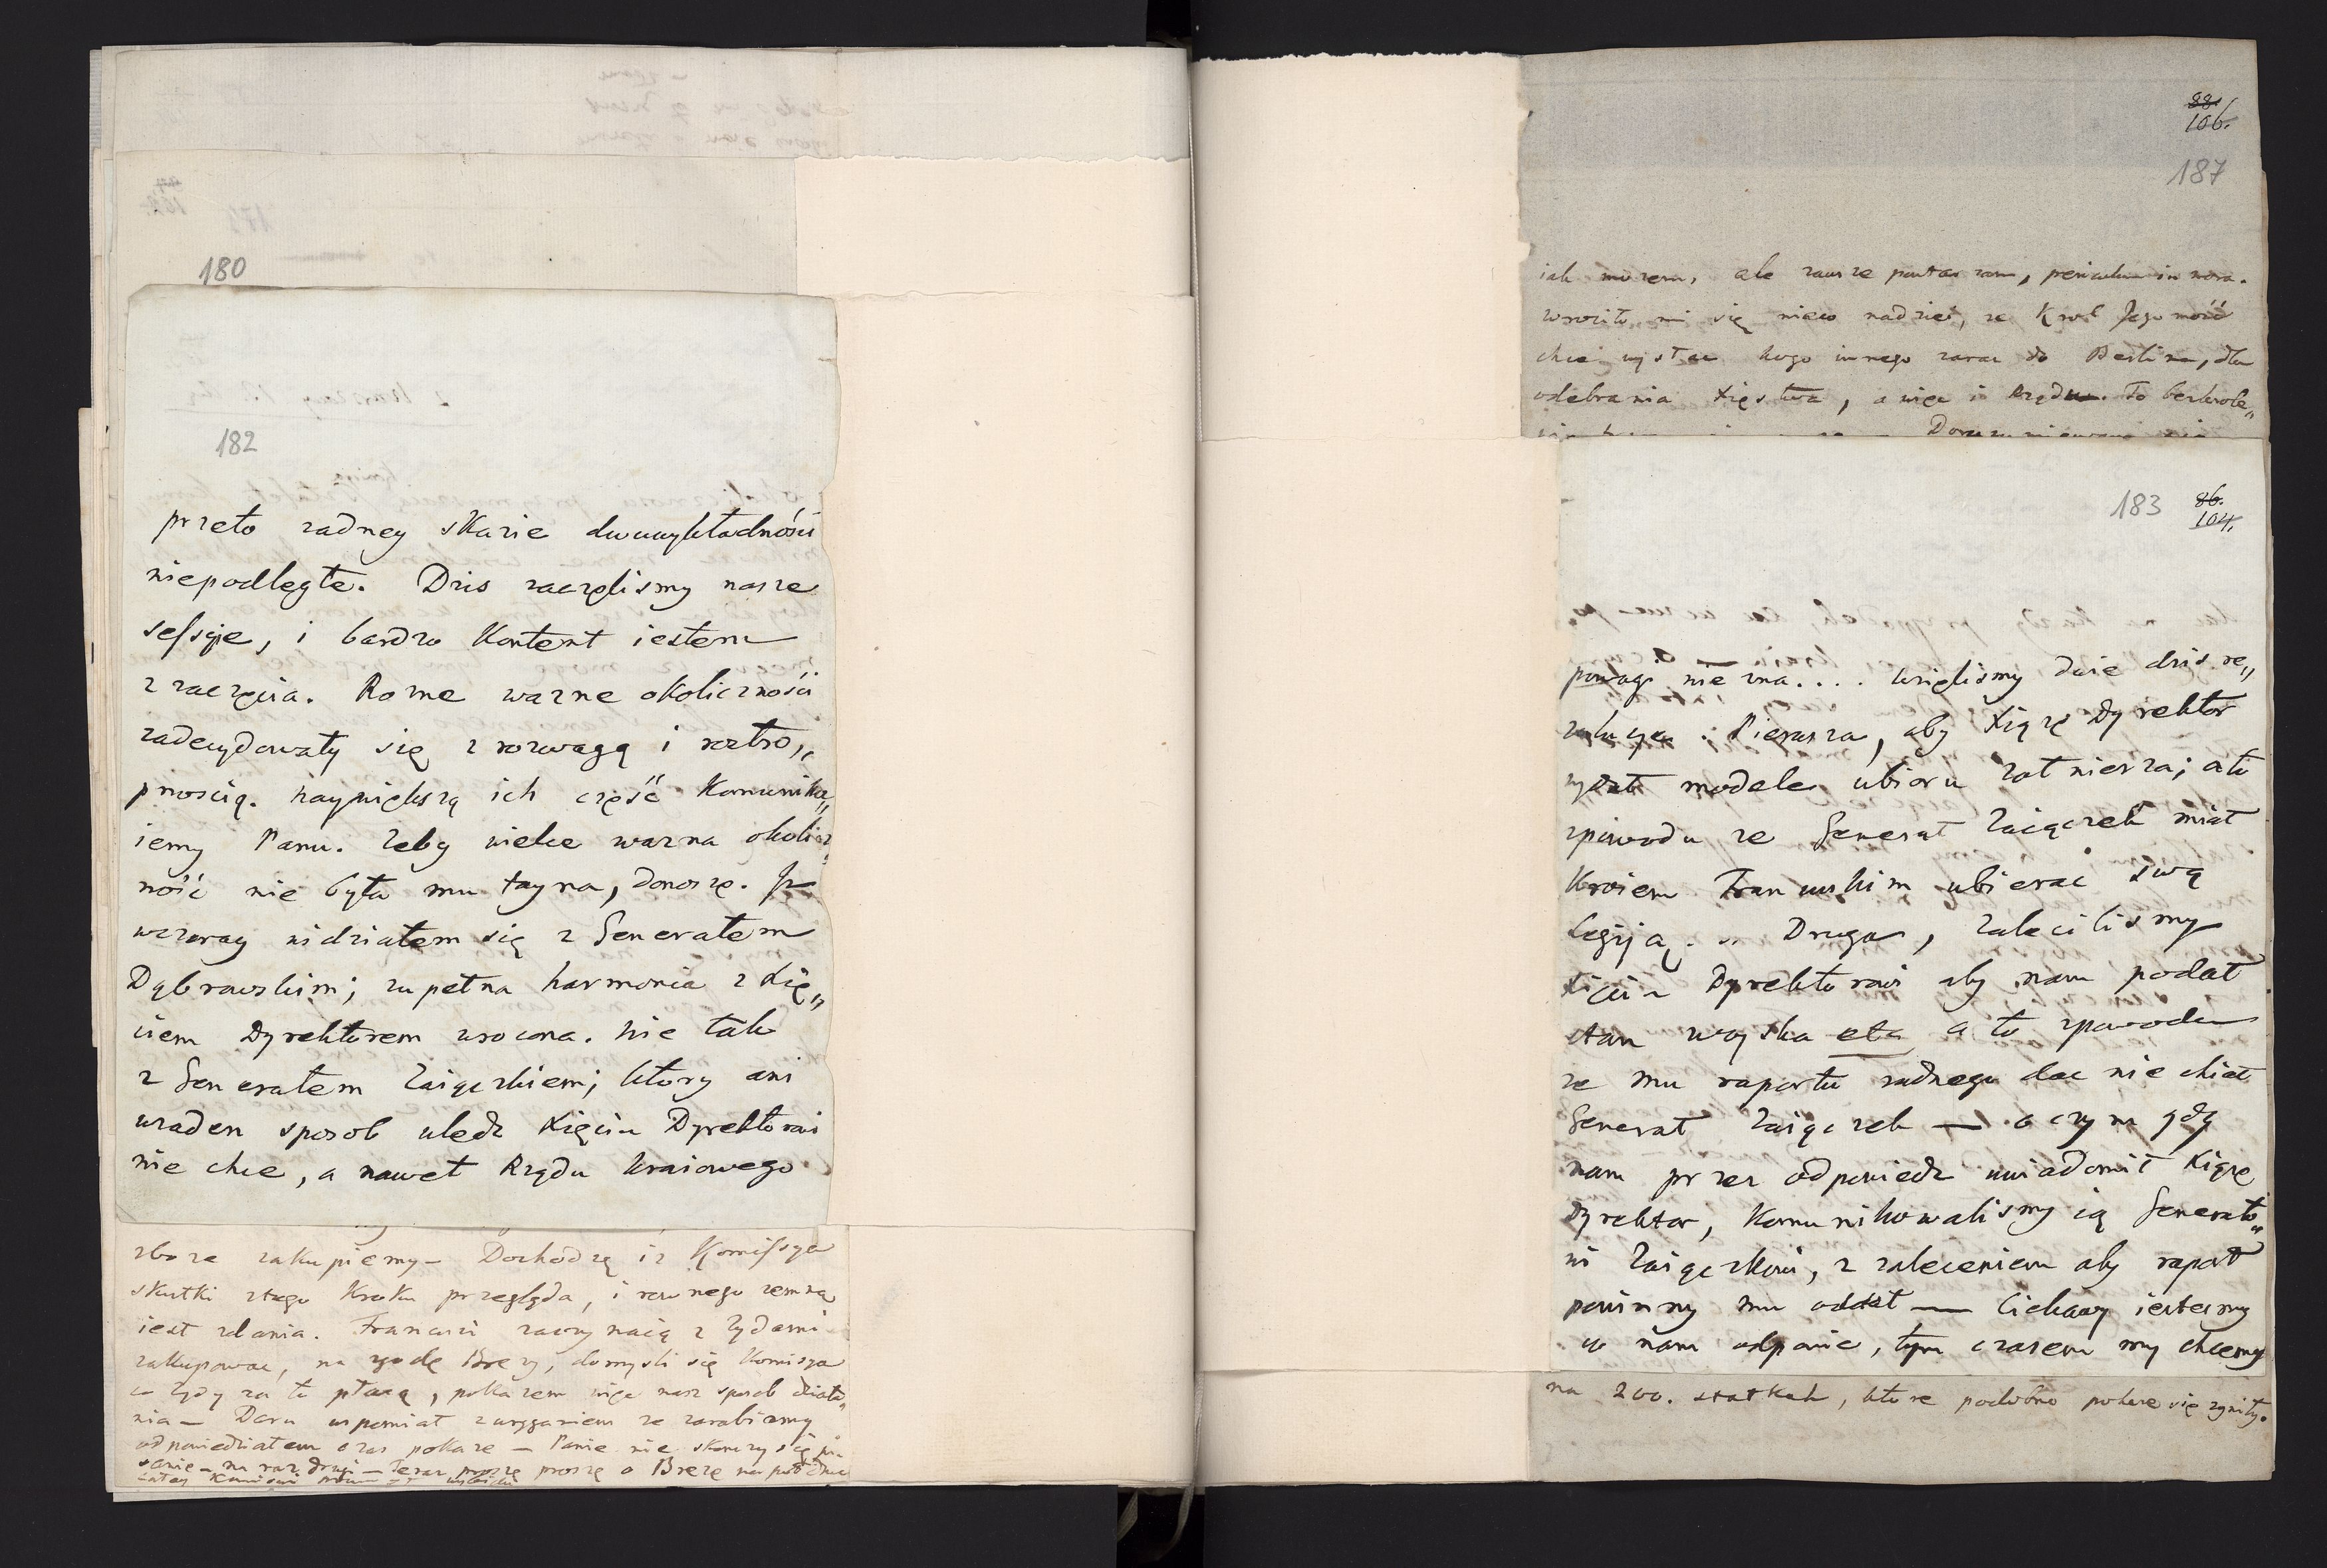 180
182
przeto zadney skazie dwuwykładności
niepodległe. Dzis zaczęlismy nasze
sessyje, i bardzo kontent iestem
z zaczęcia. Rozne wazne okoliczności
zadecydowały się z rozwagą i roztro„
pnoscią. naywiększą ich część komunika„
iemy Panu. Zeby wielce wazna okolicz„
ność nie była mu tayna, donoszę.
wczoray widziałem się z Generałem
Dąbrowskim; zupełna harmonia z Xię„
ciem Dyrektorem wrocona. nie tak
z Generałem Zaiączkiem; ktory ani
wzaden sposob uledz Xięciu Dyrektorowi
nie chce, a nawet Rządu kraiowego
zboze zakupiemy – Dochodzą iz Komissya
skutki z tego kroku przegląda, i rownego zemną
iest zdania. Francuzi zaczynaią z Zydami
zakupowac, na zgodę Brezy, domysli się komissya
co Zydy za to płacą, pokazem więc nasz sposob działa„
nia – Daru wspomiał z urąganiem ze zarabiamy
odpowiedziałem czas pokaze – Panie nie skonczy się
na raz drugi – teraz proszę proszę o Brezę
88.
106.
187
iak mozem, ale zawsze powtarzam, periculum in mora.
wrociło mi się nieco nadziei, ze Krol Jegomość
chce wysłac kogo innego zaraz do Berlina, dla
odebrania Xięstwa, a więc i Rządu. To bezkrole„
183
86.
104.
powagi nie zna.... wzięlismy dwie dzis re„
zolucye. Pierwsza, aby Xiązę Dyrektor
wydał modele ubioru zołnierza; a to
zpowodu ze Generał Zaiączek miał
kroiem Francuskim ubierać swą
Legiją. – Druga, zalecilismy
Xięciu Dyrektorowi aby nam podał
stan woyska etc a to zpowodu
ze mu raportu zadnego dac nie chciał
Generał Zaiączek — o czym gdy
nam przez odpowiedz uwiadomił Xiąze
Dyrektor, komunikowalismy ią Generało„
wi Zaiączkowi, z zaleceniem aby raport
powinny mu oddał — Ciekawy iestesmy
co nam odpowie, tym czasem my chcemy
na 200. statkach, ktore podobno